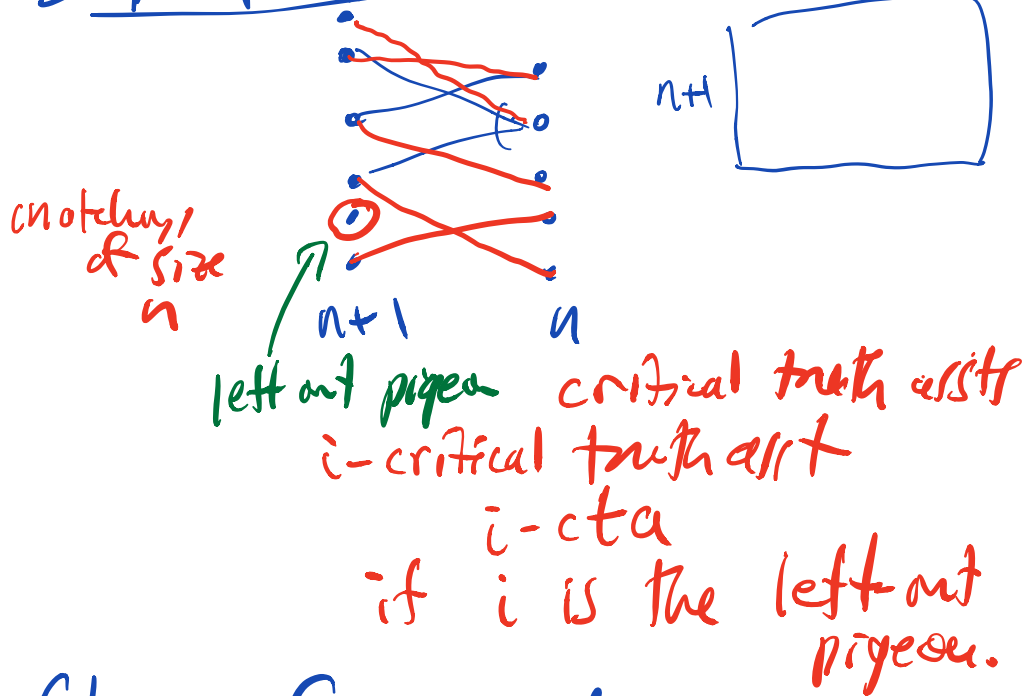 n+1
matching
of size
n
n+1 n
left out pigeon
critical truth assts
i-critical truth asst
i-cta
if i is the left-out
pigeon.